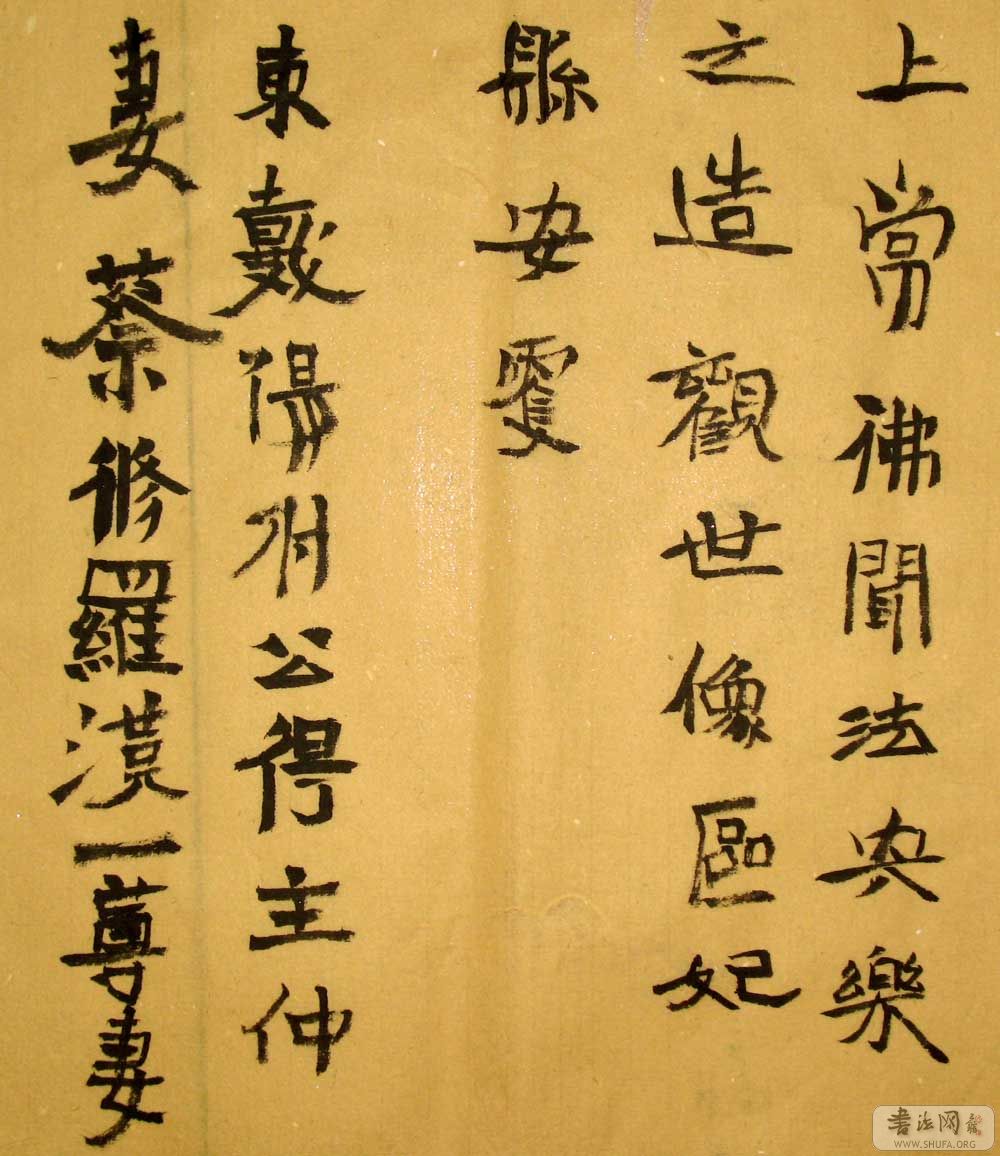 上當彿聞法央樂
之造觀世像區妃
縣安
東戴陽公得主仲
妻蔡修羅漢一尊妻
書法网
WWW.SHUFA.ORG